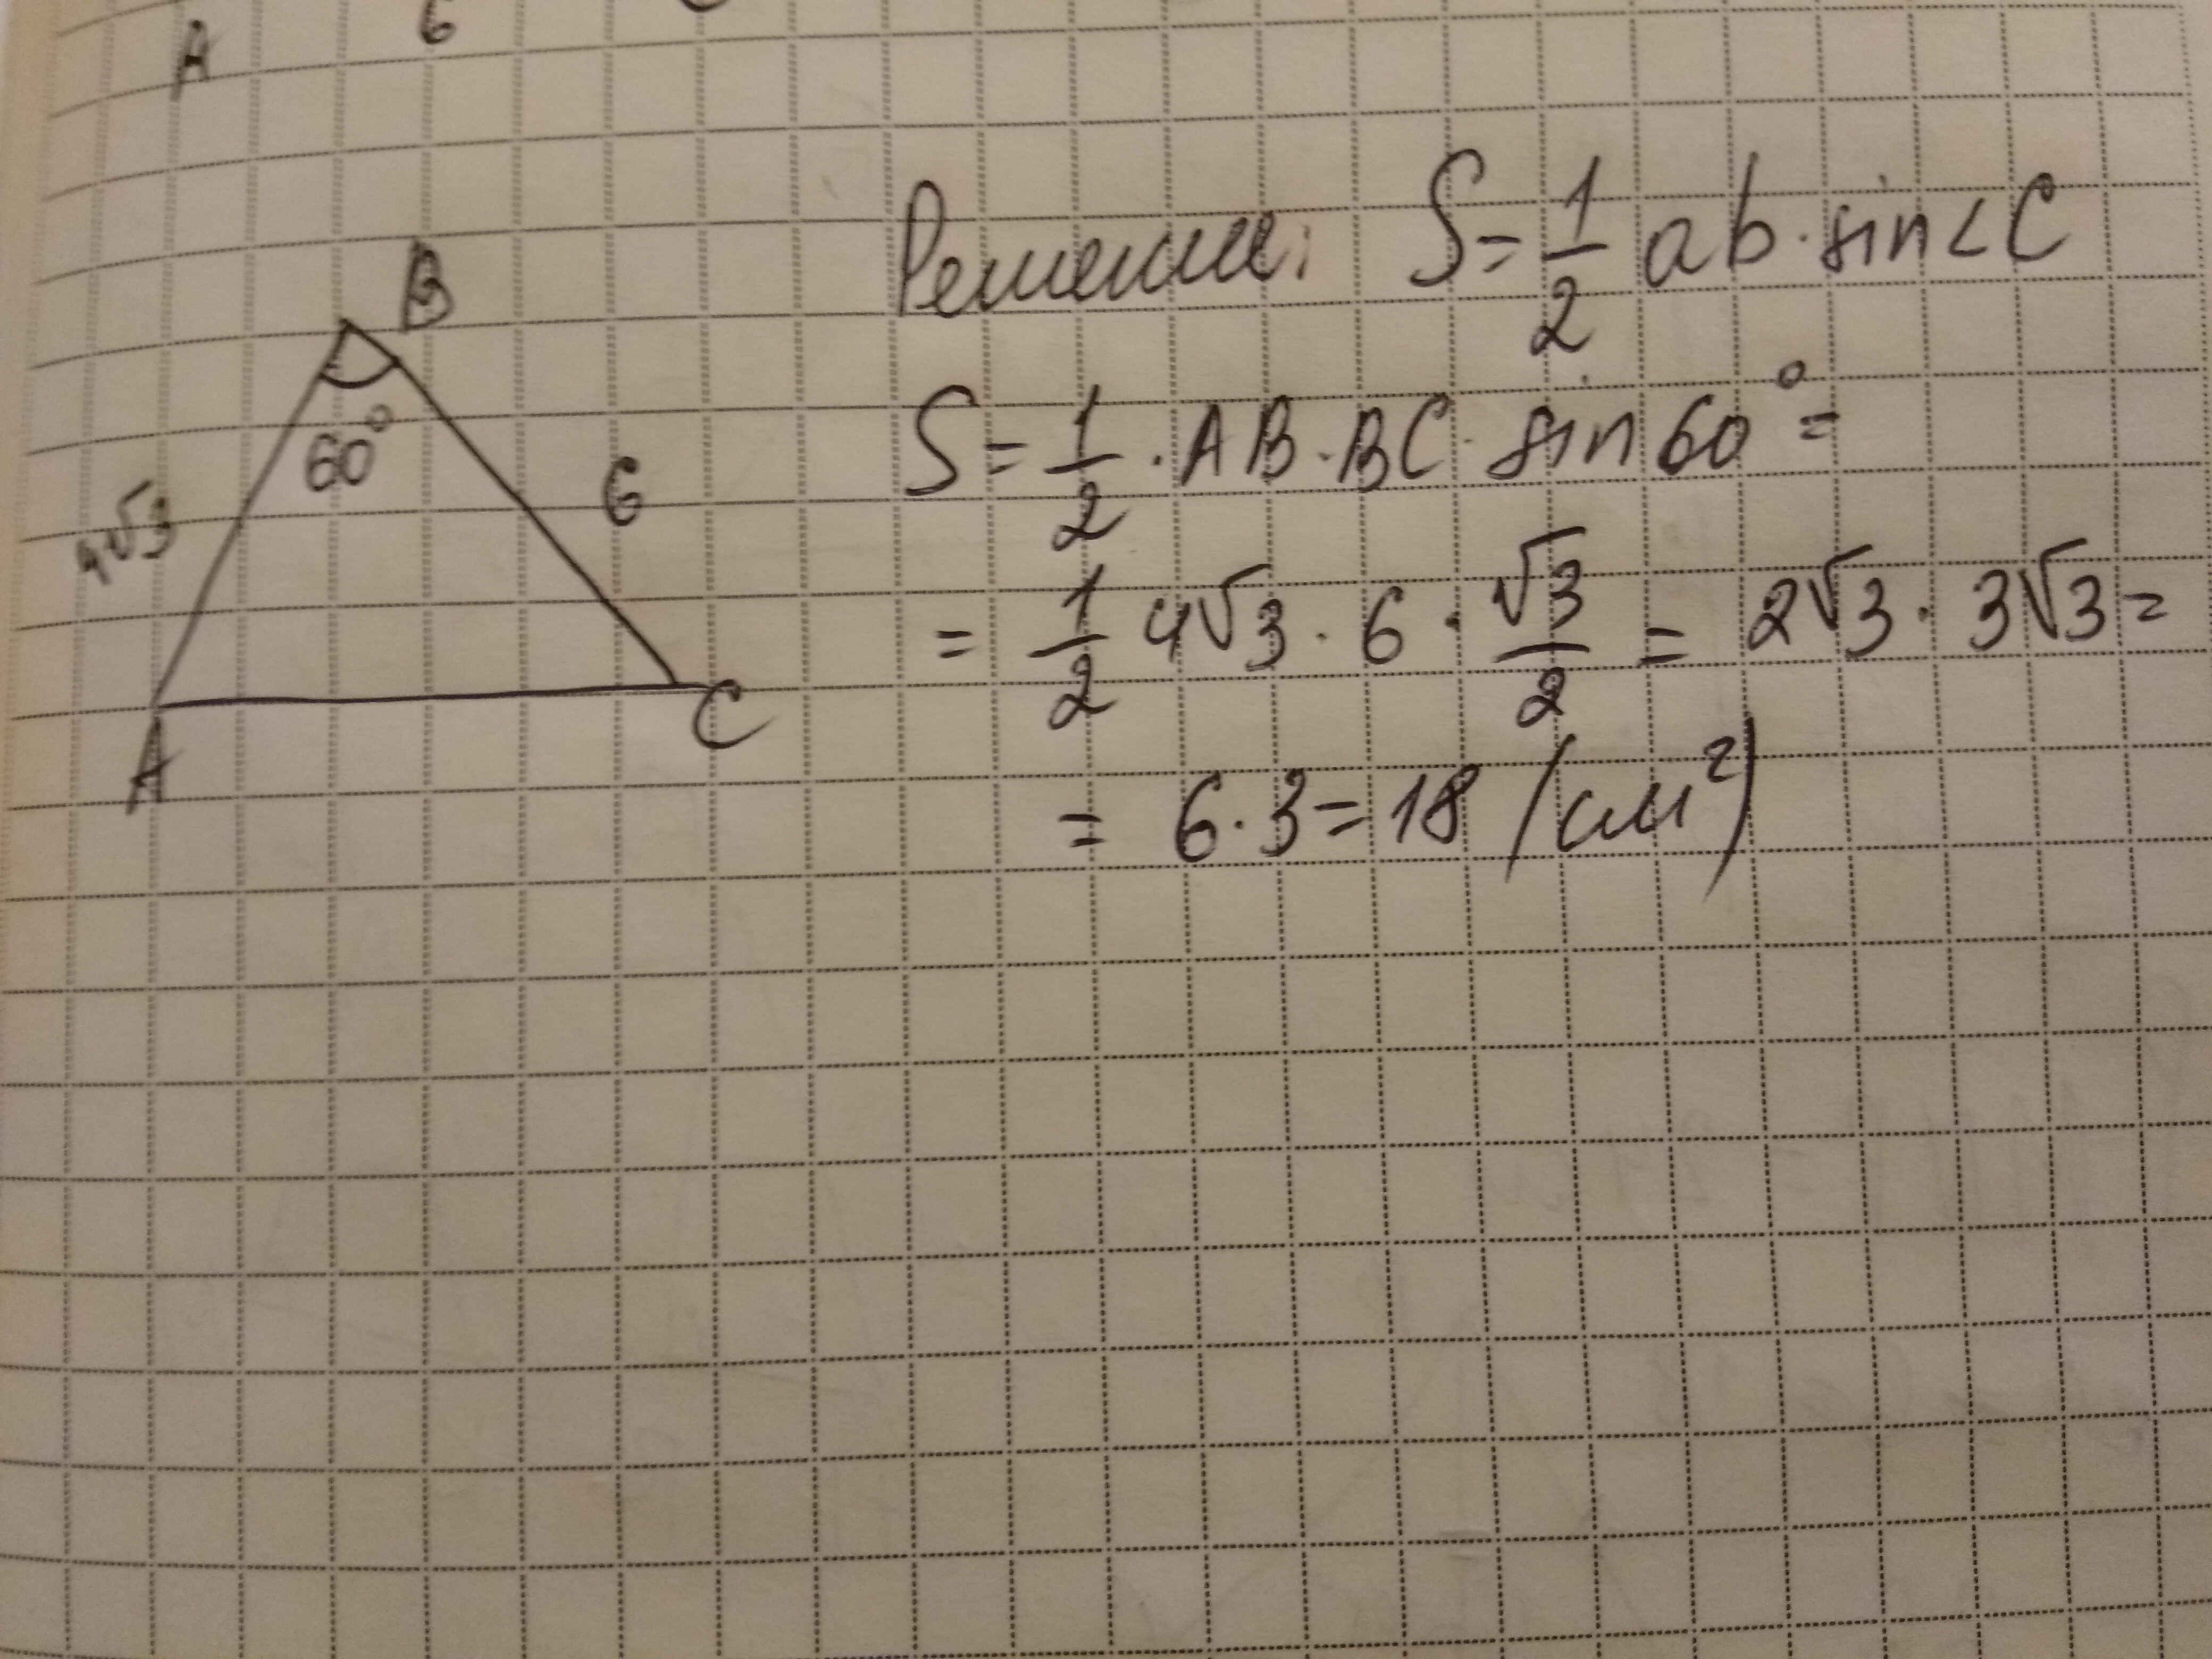 A 6
B
60°
4√3
6
A
C
Решение: S = 1/2 ab · sin∠C
S = 1/2 · AB · BC · sin 60° =
= 1/2 4√3 · 6 · √3/2 = 2√3 · 3√3 =
= 6 · 3 = 18 (см²)